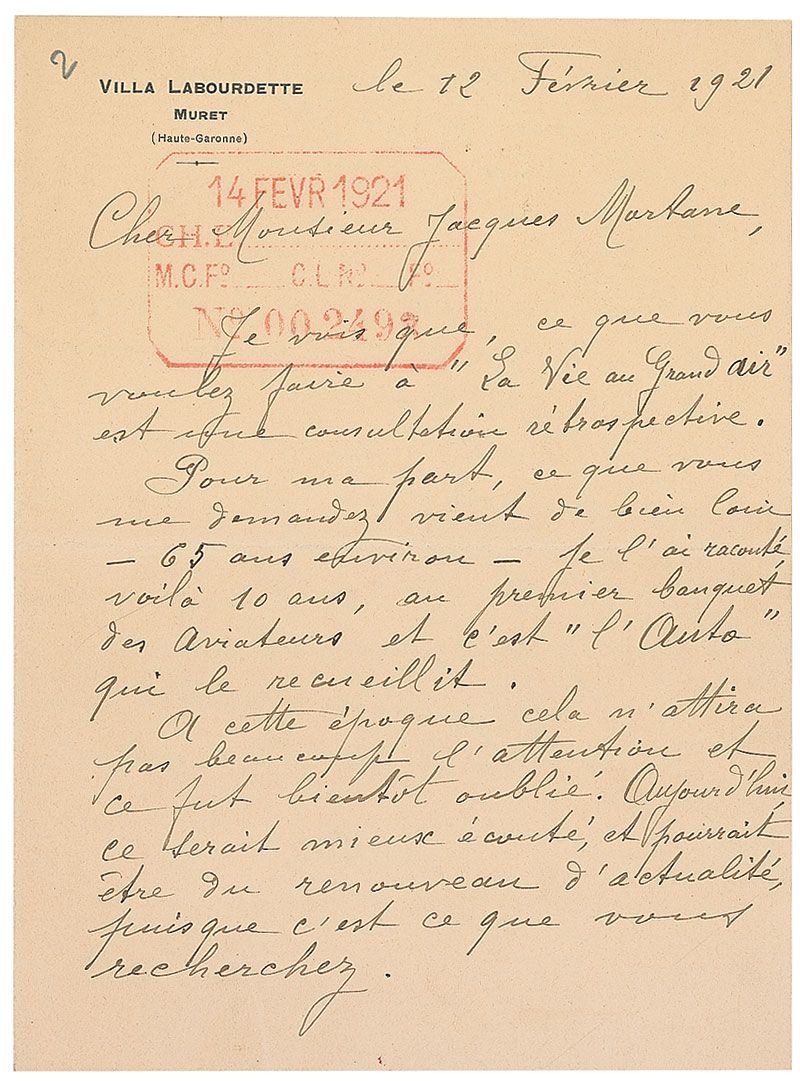 2
VILLA LABOURDETTE
MURET
(Haute-Garonne)
le 12 Février 1921
14 FEVR 1921
CH.E
M.C.Fº C.L Nº Fº
Nº 00 249
Cher Monsieur Jacques Mortane,
Je vois que, ce que vous
voulez faire à "La Vie au Grand air"
est une consultation rétrospective.
Pour ma part, ce que vous
me demandez vient de bien loin
– 65 ans environ – Je l'ai raconté,
voilà 10 ans, au premier banquet
des Aviateurs et c'est "l'Auto"
qui le recueillit.
A cette époque cela n'attira
pas beaucoup l'attention et
ce fut bientôt oublié. Aujourd'hui,
ce serait mieux écouté, et pourrait
être du renouveau d'actualité,
puisque c'est ce que vous
recherchez.